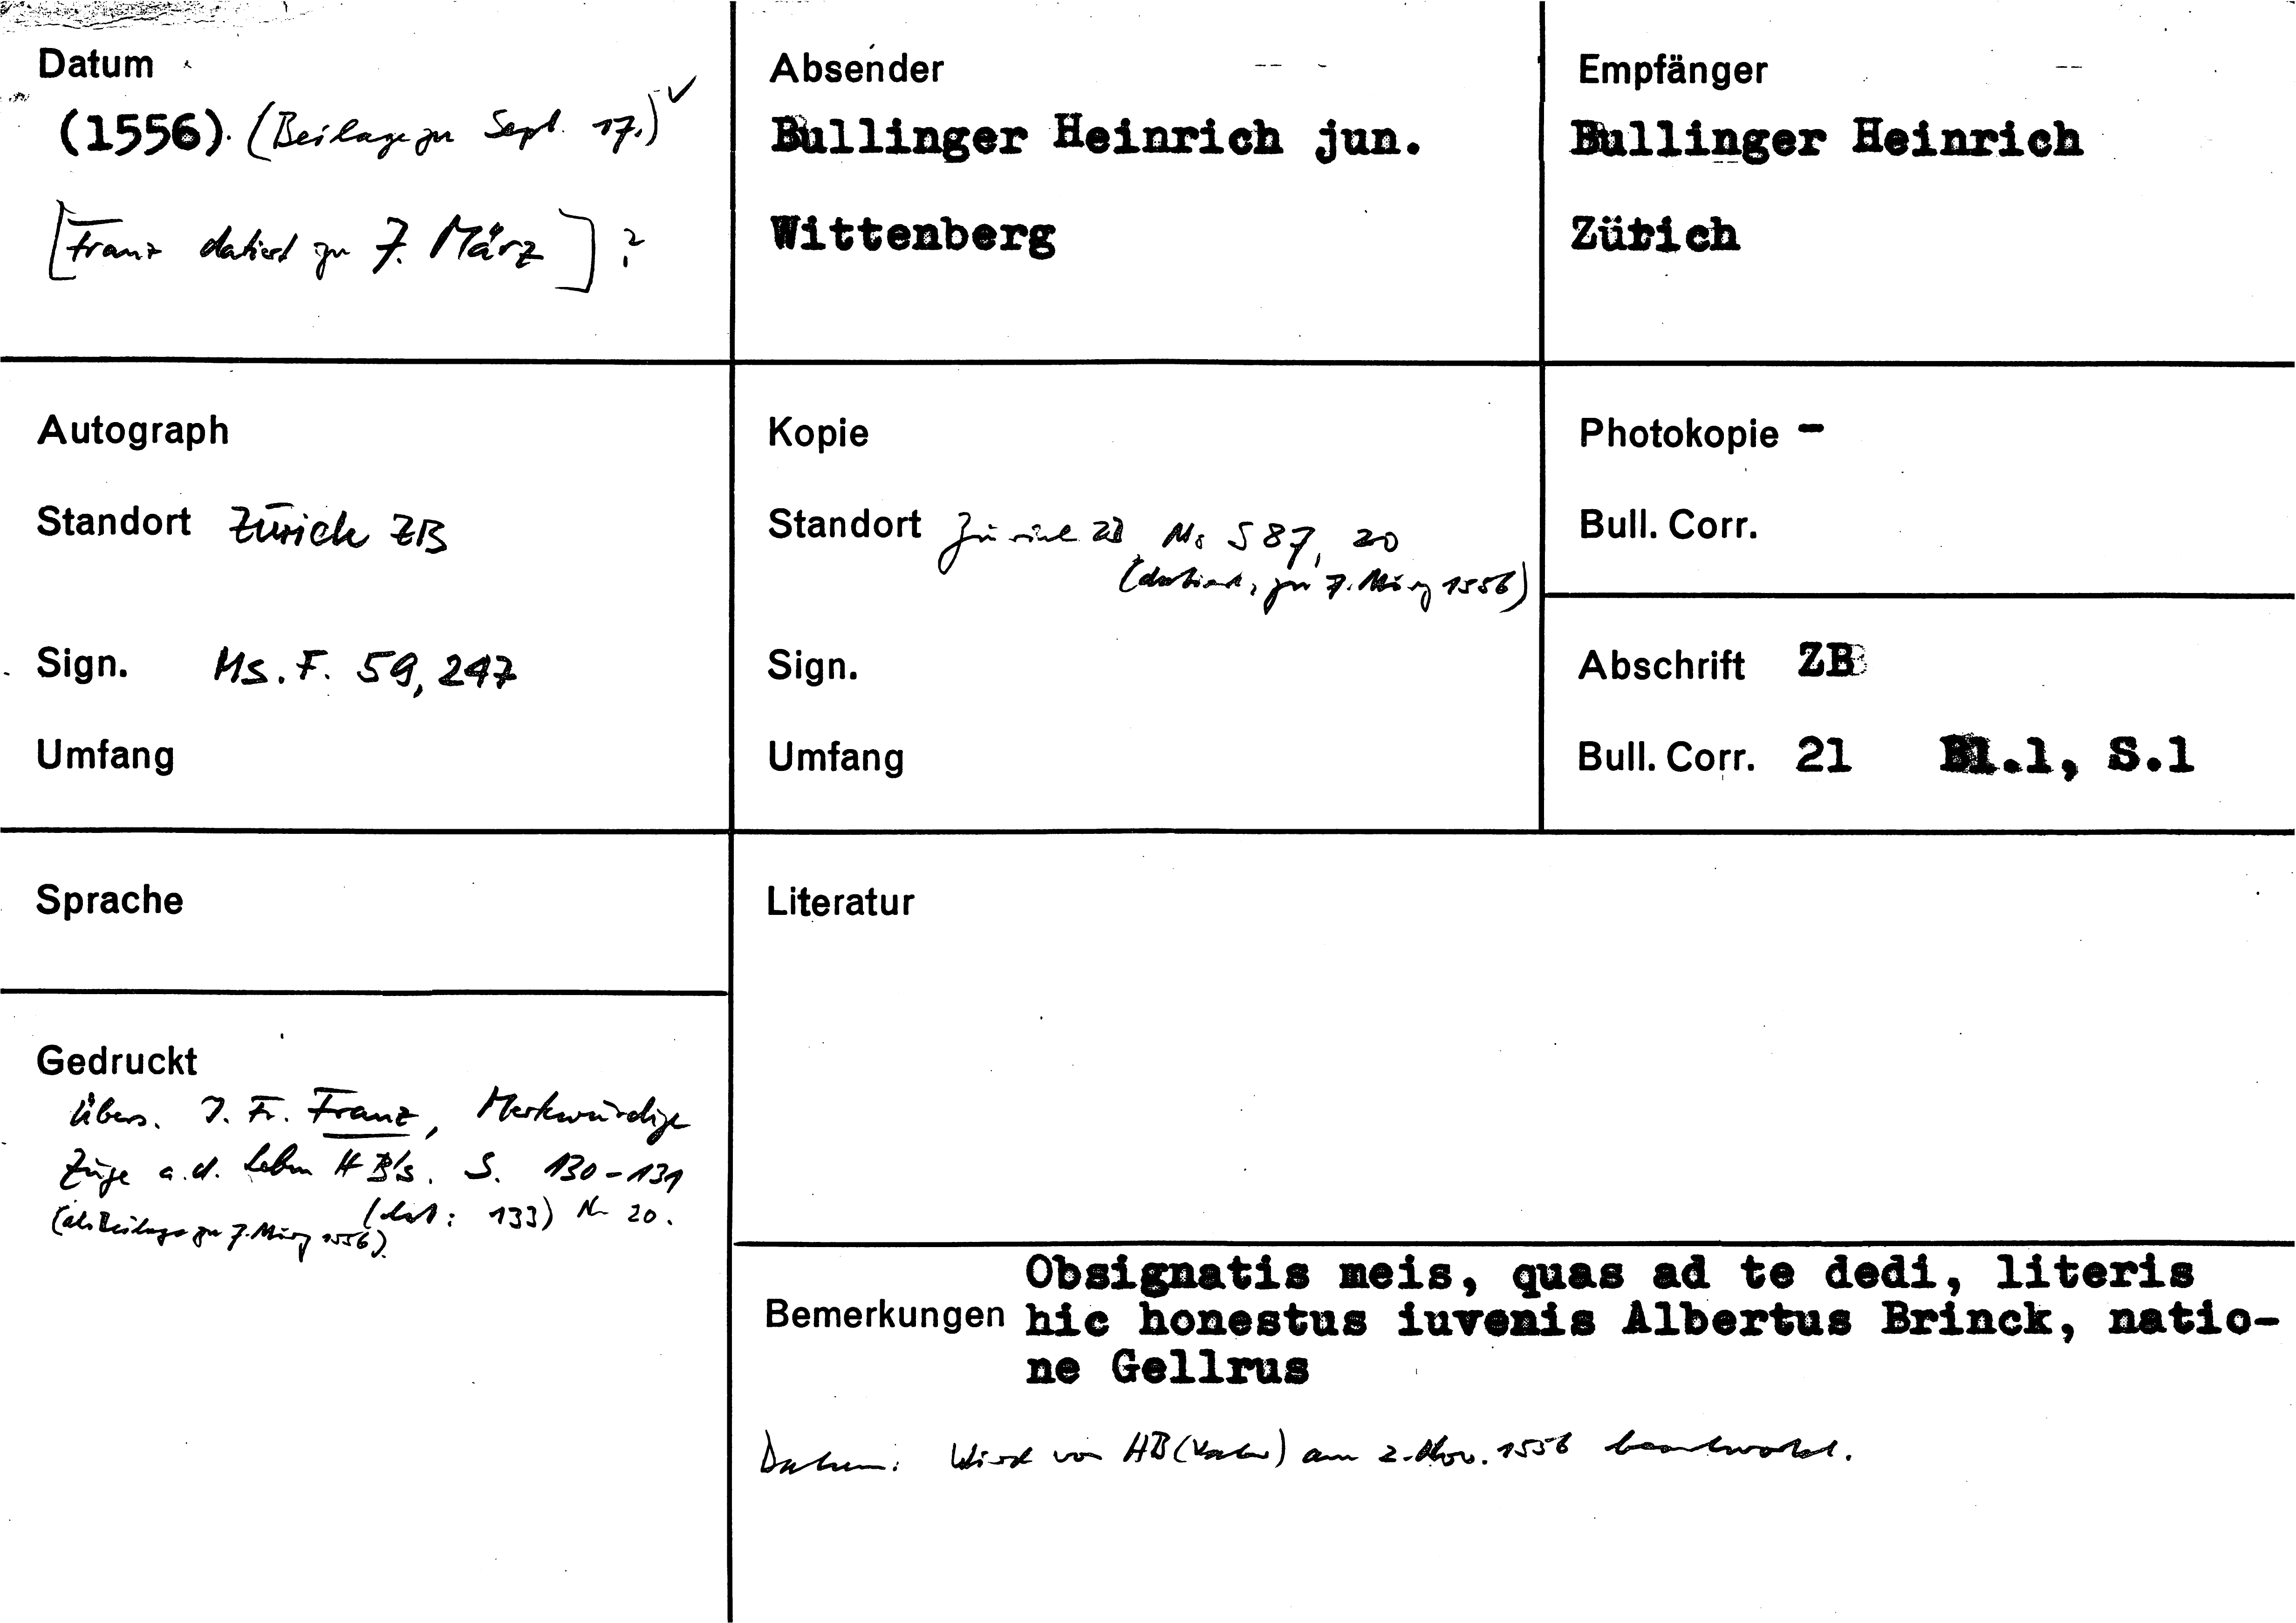 Datum
(1556). (Beilage zu Sept. 17.) ✓
[Franz datiert zu 7. März] ?
Absender
Bullinger Heinrich jun.
Wittenberg
Empfänger
Bullinger Heinrich
Zürich
Autograph
Standort Zürich ZB
Sign. Ms. F. 59, 247
Umfang
Kopie
Standort Zürich ZB, Ms S 87, 20
(datiert, zu 7. März 1556)
Sign.
Umfang
Photokopie -
Bull. Corr.
Abschrift ZB
Bull. Corr. 21 Bl.1, S.1
Sprache
Literatur
Gedruckt
Übers. J. Fr. Franz, Merkwürdige
Züge a. d. Leben HB's. S. 130-131
(dat: 133) Nr 20.
(als Beilage zu 7. März 1556).
Bemerkungen
Obsignatis meis, quas ad te dedi, literis
hic honestus iuvenis Albertus Brinck, natio-
ne Gellrus
Datum: Wird von HB (Vater) am 2. Nov. 1556 beantwortet.